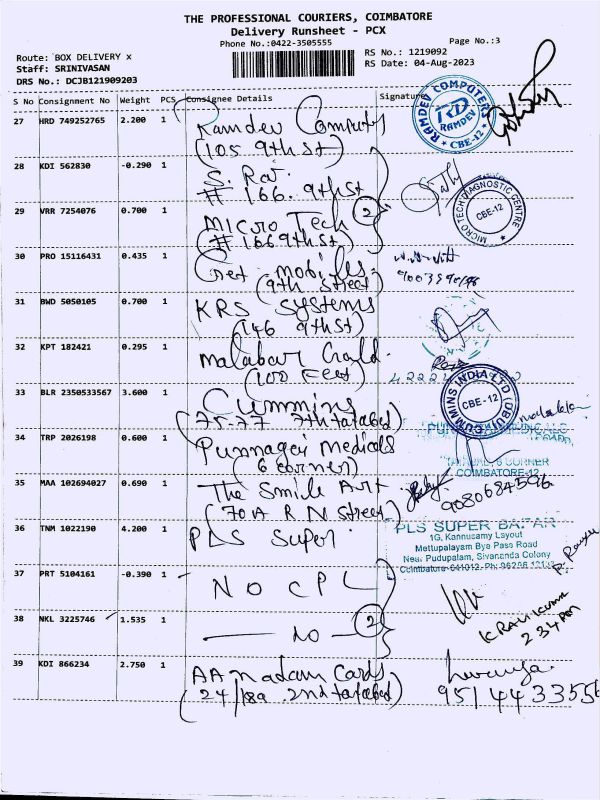 THE PROFESSIONAL COURIERS, COIMBATORE
Delivery Runsheet - PCX
Phone No.:0422-3505555
Page No.:3
Route: BOX DELIVERY x
Staff: SRINIVASAN
DRS No.: DCJB121909203
RS No.: 1219092
RS Date: 04-Aug-2023
S No Consignment No Weight PCS Consignee Details Signature
27 HRD 749252765 2.200 1 Ramdev Computers
(105 9th St)
RAMDEV COMPUTERS
RD
RAMDEV
* CBE-12 *
28 KDI 562830 -0.290 1 S. Raj
# 166. 9th St
29 VRR 7254076 0.700 1 Micro Tech
(# 166 9th St)
2
MICRO TECH DIAGNOSTIC CENTRE
CBE-12
30 PRO 15116431 0.435 1 Cnet mobiles
(9th Street)
31 BWD 5050105 0.700 1 KRS Systems
(146 9th St)
32 KPT 182421 0.295 1 Malabar Gold
(100 Feet)
33 BLR 2350533567 3.600 1 Cummins
(75-77 7th Tatabad)
CUMMINS INDIA LTD
CBE-12
34 TRP 2026198 0.600 1 Punnagai Medicals
(6 corner)
6 CORNER
COIMBATORE-12
35 MAA 102694027 0.690 1 The Smile Art
(70A R N Street)
9080684596
36 TNM 1022190 4.200 1 PLS Super
PLS SUPER BAZAR
1G, Kannusamy Layout
Mettupalayam Bye Pass Road
Near Pudupalam, Sivananda Colony
Coimbatore-641012
37 PRT 5104161 -0.390 1 NO CPL
38 NKL 3225746 1.535 1 — NO —
2
K RAVI KUMAR
2 34 PM
39 KDI 866234 2.750 1 AA Madam Cards
(24/189 2nd Tatabad)
9514433556